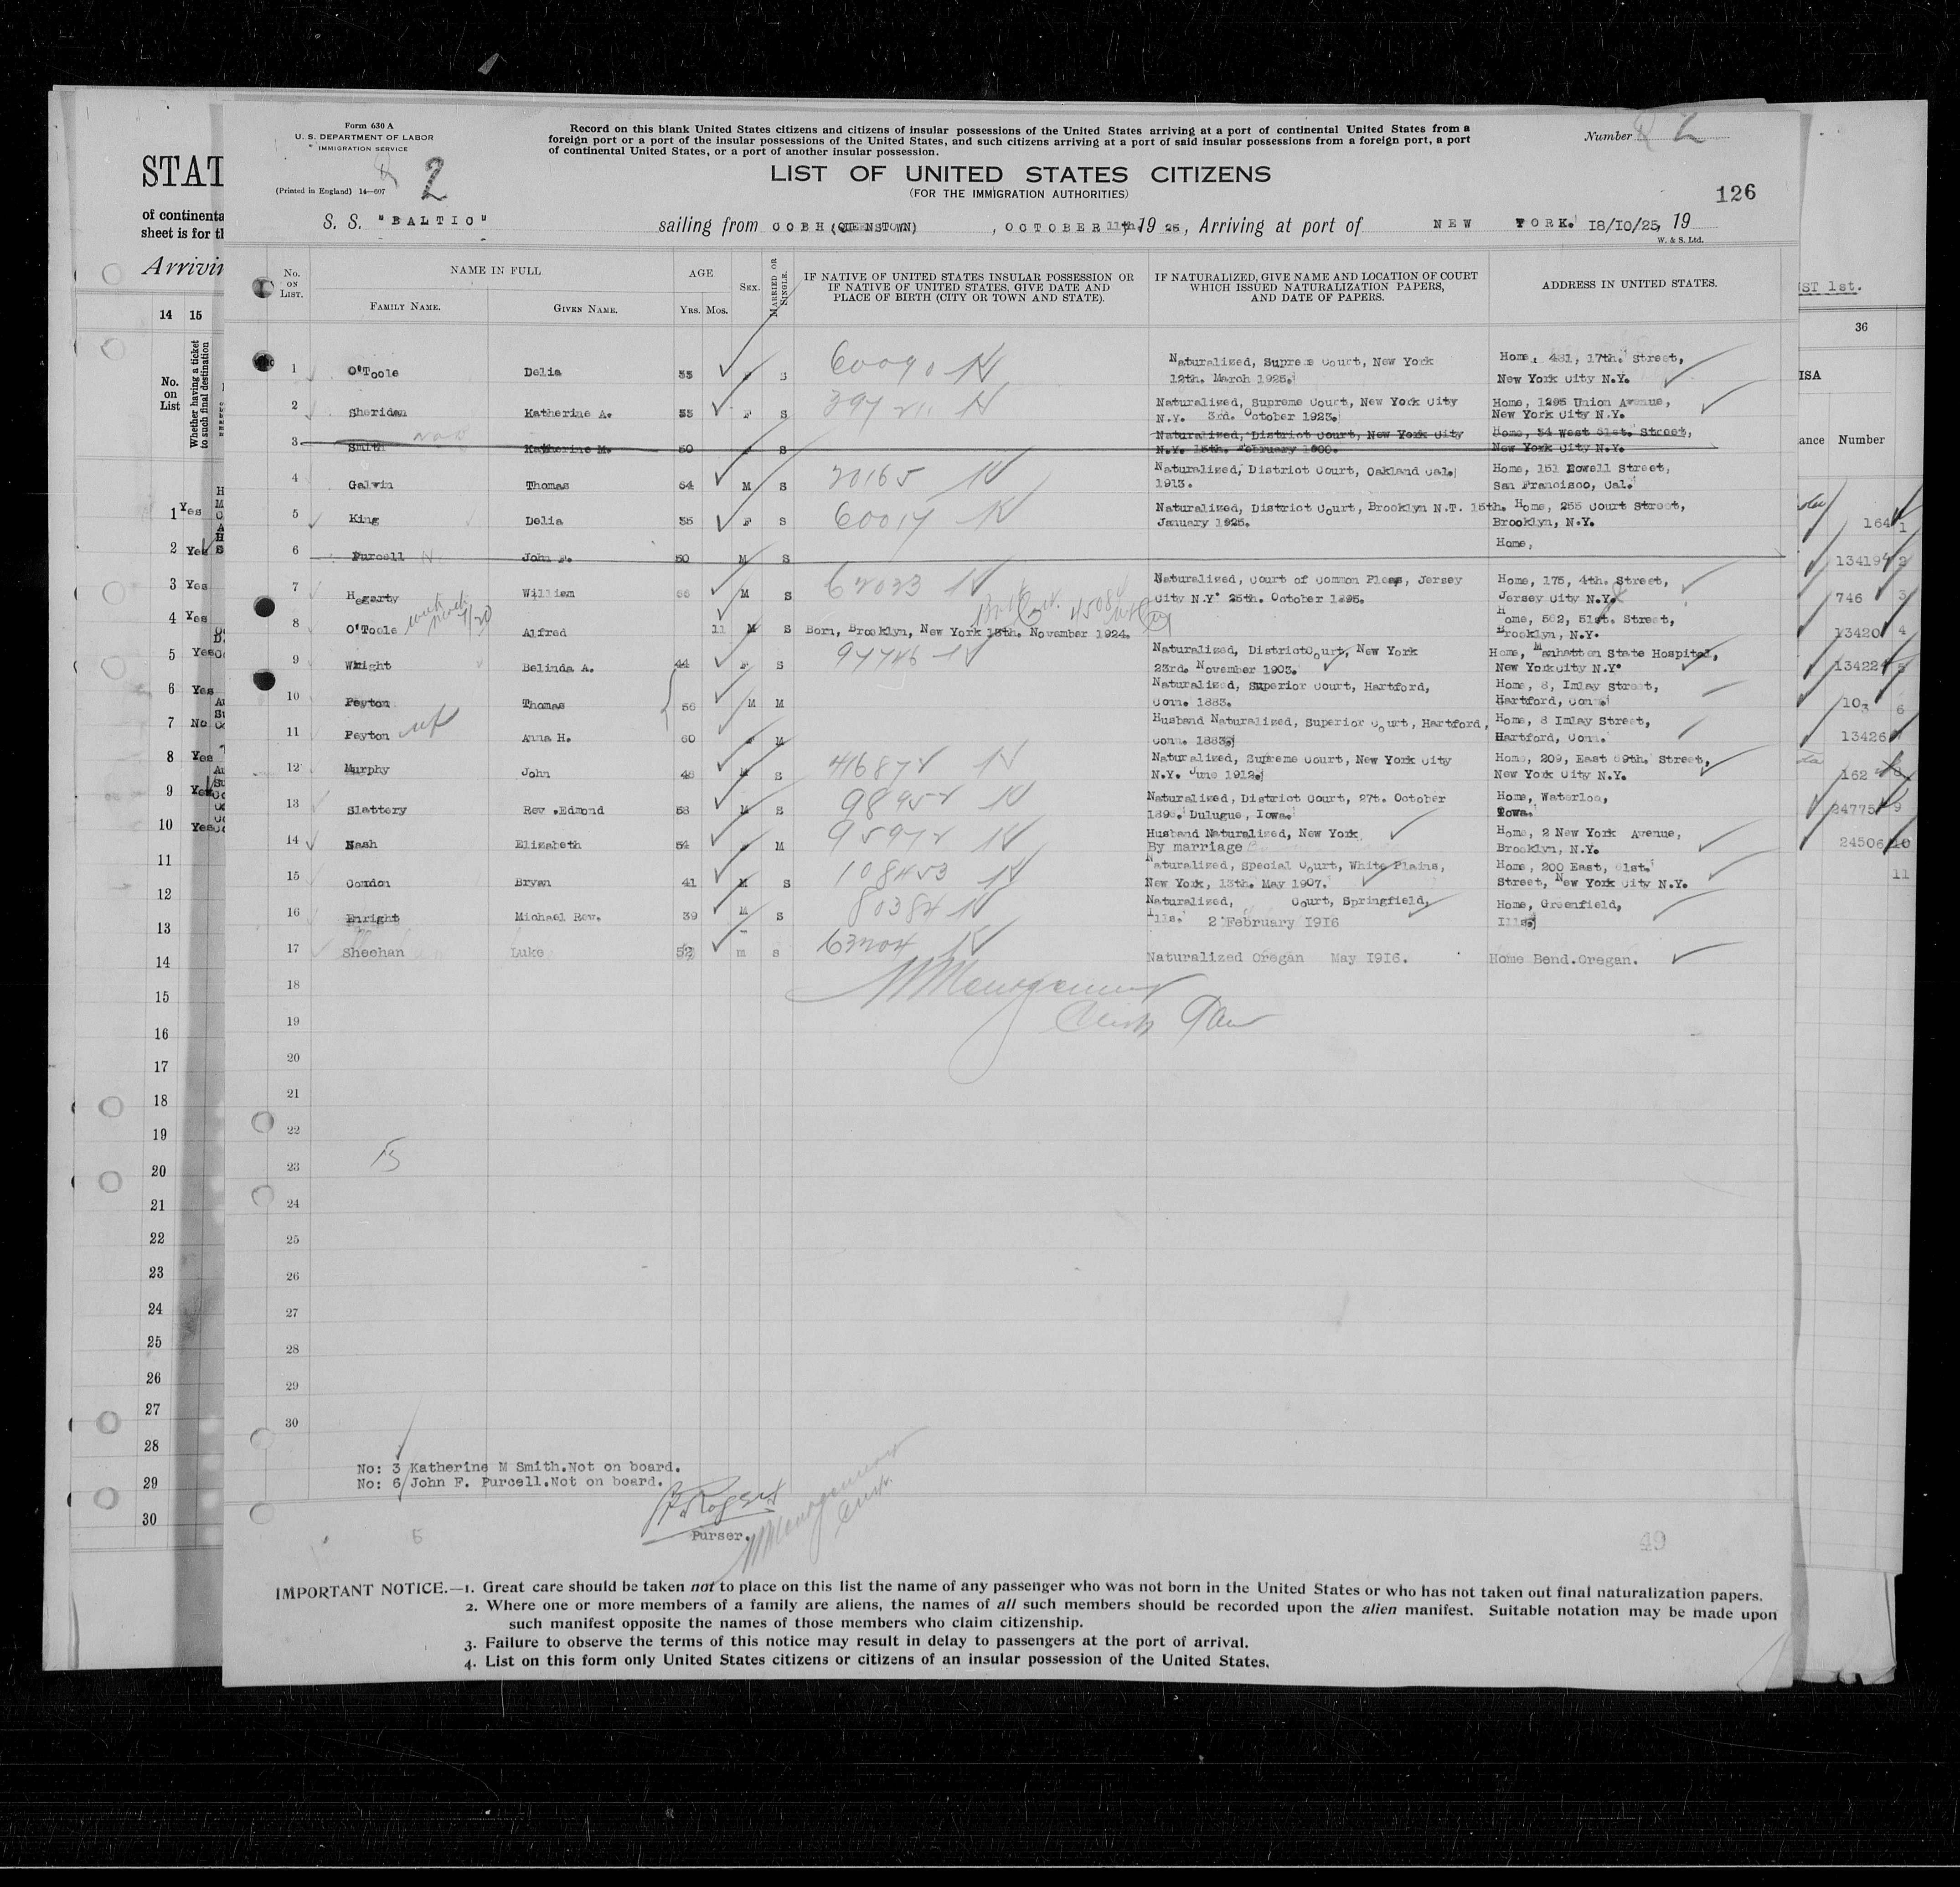 Form 630 A
U. S. DEPARTMENT OF LABOR
IMMIGRATION SERVICE
(Printed in England) 14—607
2
Record on this blank United States citizens and citizens of insular possessions of the United States arriving at a port of continental United States from a
foreign port or a port of the insular possessions of the United States, and such citizens arriving at a port of said insular possessions from a foreign port, a port
of continental United States, or a port of another insular possession.
Number 2
LIST OF UNITED STATES CITIZENS
(FOR THE IMMIGRATION AUTHORITIES)
126
S. S. "BALTIC" sailing from COBH (QUEENSTOWN), OCTOBER 11th. 19 25, Arriving at port of NEW YORK. 18/10/25, 19
W. & S. Ltd.
No. ON LIST.
NAME IN FULL
FAMILY NAME.
GIVEN NAME.
AGE
YRS. MOS.
SEX.
MARRIED OR SINGLE.
IF NATIVE OF UNITED STATES INSULAR POSSESSION OR
IF NATIVE OF UNITED STATES, GIVE DATE AND
PLACE OF BIRTH (CITY OR TOWN AND STATE).
IF NATURALIZED, GIVE NAME AND LOCATION OF COURT
WHICH ISSUED NATURALIZATION PAPERS,
AND DATE OF PAPERS.
ADDRESS IN UNITED STATES.
1 O'Toole Delia 33 F S 60090 Naturalized, Supreme Court, New York Home, 481, 17th. Street,
12th. March 1925. New York City N.Y.
2 Sheridan Katherine A. 33 F S Naturalized, Supreme Court, New York City Home, 1295 Union Avenue,
N.Y. 3rd. October 1923. New York City N.Y.
3 Smith Katherine M. 50 F S Naturalized, District Court, New York City Home, 54 West 61st. Street,
N.Y. 15th. February 1900. New York City N.Y.
4 Galvin Thomas 54 M S 20165 Naturalized, District Court, Oakland Cal. Home, 151 Howell Street,
1913. San Francisco, Cal.
5 King Delia 35 F S Naturalized, District Court, Brooklyn N.T. 15th. Home, 255 Court Street,
January 1925. Brooklyn, N.Y.
6 Purcell John F. 50 M S Home,
7 Hegarty William M S Naturalized, Court of Common Pleas, Jersey Home, 175, 4th. Street,
City N.Y. 25th. October 1895. Jersey City N.Y.
8 O'Toole Alfred 11 M S Born, Brooklyn, New York 18th. November 1924. Home, 562, 51st. Street,
Brooklyn, N.Y.
9 Wright Belinda A. 44 F S Naturalized, District Court, New York Home, Manhattan State Hospital,
23rd. November 1903. New York City N.Y.
10 Peyton Thomas 56 M M Naturalized, Superior Court, Hartford, Home, 8, Imlay Street,
Conn. 1883. Hartford, Conn.
11 Peyton Anna H. 60 F M Husband Naturalized, Superior Court, Hartford, Home, 8 Imlay Street,
Conn. 1883. Hartford, Conn.
12 Murphy John 46 M S Naturalized, Supreme Court, New York City Home, 209, East 69th. Street,
N.Y. June 1912. New York City N.Y.
13 Slattery Rev .Edmond 58 M S Naturalized, District Court, 27t. October Home, Waterloo,
Dulugue, Iowa. Iowa.
14 Nash Elizabeth 54 F M Husband Naturalized, New York Home, 2 New York Avenue,
By marriage Brooklyn, N.Y.
15 Condon Bryan 41 M S 108453 Naturalized, Special Court, White Plains, Home, 200 East, 61st.
New York, 13th. May 1907. Street, New York City N.Y.
16 Enright Michael Rev. 39 M S 80384 Naturalized, Court, Springfield, Home, Greenfield,
Ills. 2 February 1916 Ills.
17 Sheehan Luke 52 m s 63204 Naturalized Oregan May 1916. Home Bend.Oregan.
18
19
20
21
22
23
24
25
26
27
28
29
30
No: 3 Katherine M Smith.Not on board.
No: 6 John F. Purcell.Not on board.
Purser.
49
IMPORTANT NOTICE.—1. Great care should be taken not to place on this list the name of any passenger who was not born in the United States or who has not taken out final naturalization papers.
2. Where one or more members of a family are aliens, the names of all such members should be recorded upon the alien manifest. Suitable notation may be made upon
such manifest opposite the names of those members who claim citizenship.
3. Failure to observe the terms of this notice may result in delay to passengers at the port of arrival.
4. List on this form only United States citizens or citizens of an insular possession of the United States.
STAT
of continenta
sheet is for th
Arrivin
14 15
No. on List
Whether having a ticket to such final destination
1 Yes
2 Yes
3 Yes
4 Yes
5 Yes
6 Yes
7 No
8 Yes
9 Yes
10 Yes
11
12
13
14
15
16
17
18
19
20
21
22
23
24
25
26
27
28
29
30
ST 1st.
36
ISA
ance Number
164 1
13419 2
746 3
13420 4
13422 5
103 6
13426 7
162 8
24775 9
24506 10
11